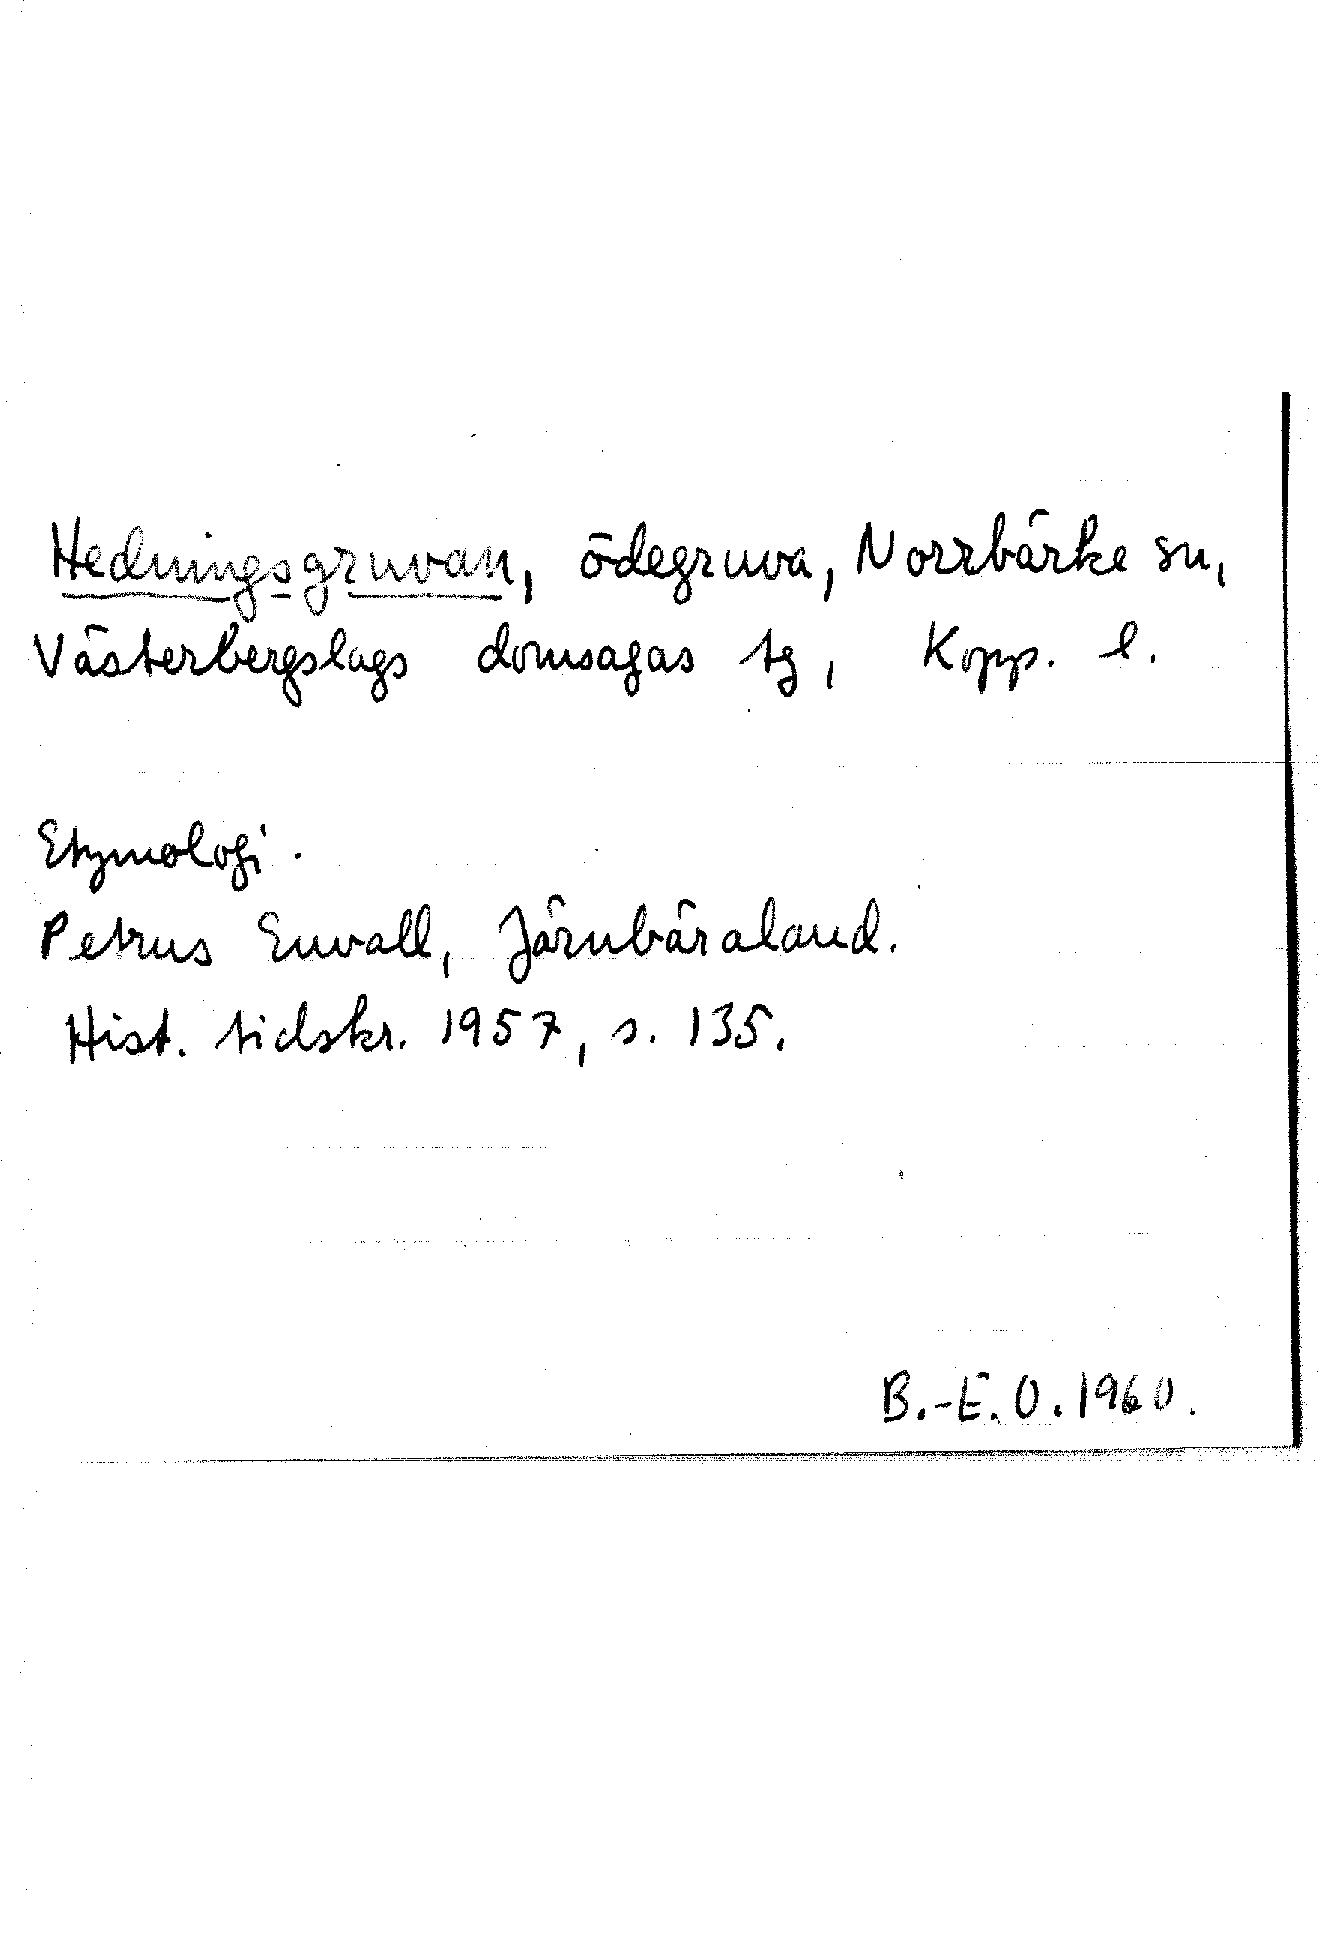 Hedningsgruvan, ödegruva, Norrbärke sn,
Västerbergslags domsagas tg, Kopp. l.
Etymologi.
Petrus Envall, Järnbäraland.
Hist. tidskr. 1957, s. 135.
B.-E. O. 1960.